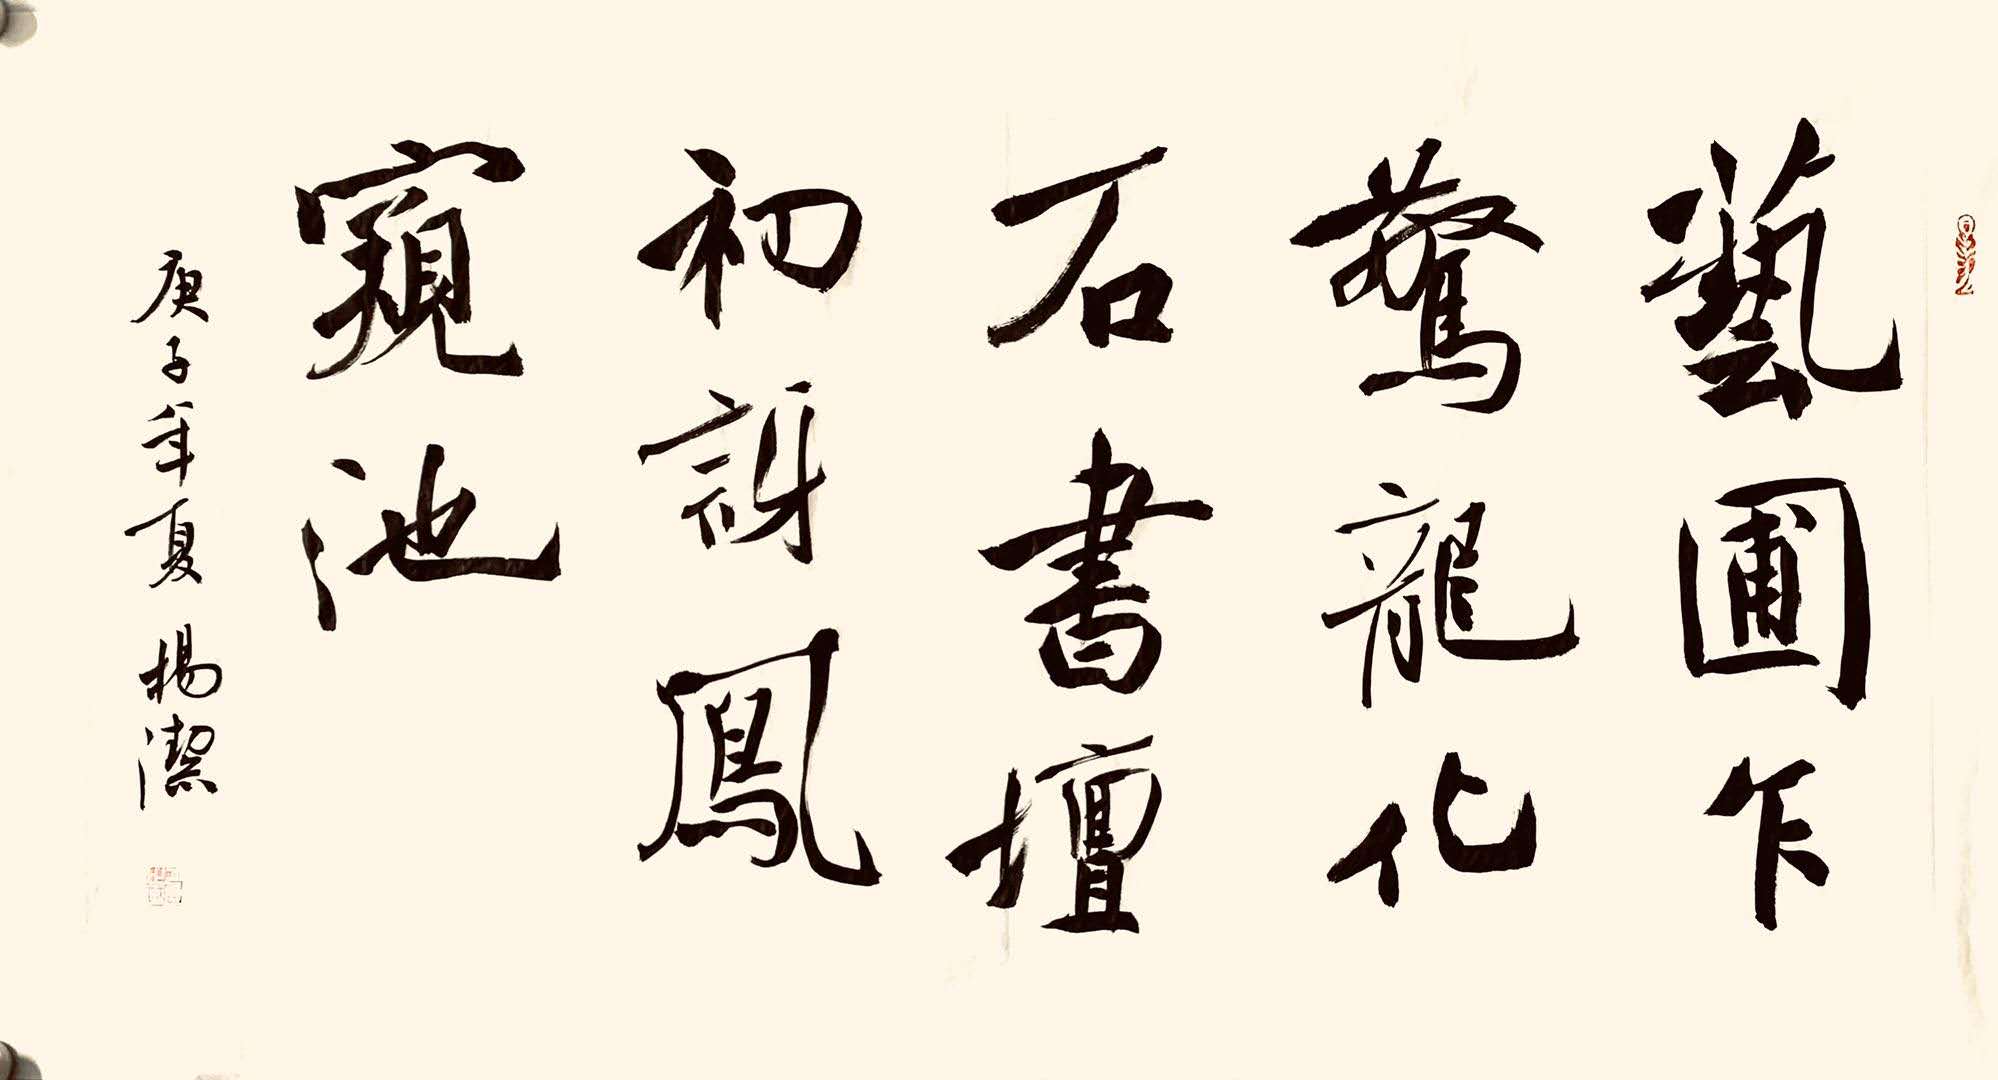 藝圃乍
驚龍化
石書壇
初訝鳳
窺池
庚子年夏楊潔